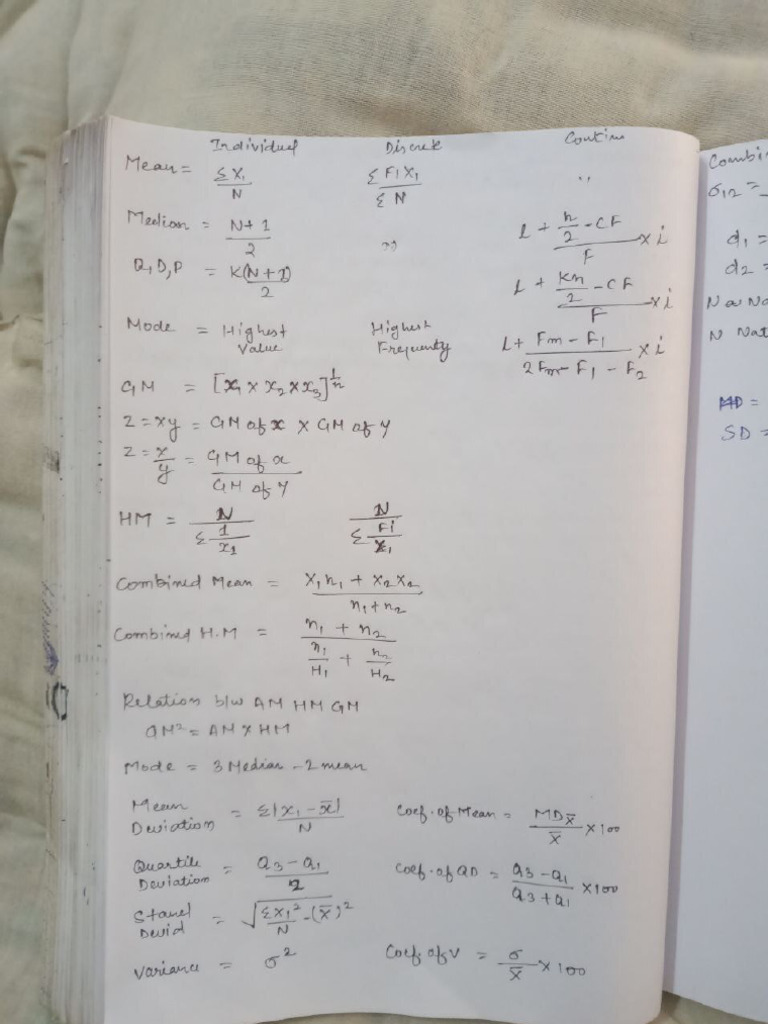 Individual Discrete Contin
Mean = ΣX₁/N ΣF1X₁/ΣN "
Median = N+1/2 " L + (n/2 - CF)/F × i
Q,D,P = K(N+1)/2 L + (Kn/2 - CF)/F × i
Mode = Highest Value Highest Frequenty L + (Fm - F₁)/(2Fm - F₁ - F₂) × i
GM = [x₁ × x₂ × x₃]^(1/n)
Z = xy = GM of x × GM of y
Z = x/y = GM of x/GM of y
HM = N/(Σ 1/x₁) N/(Σ Fi/x₁)
Combined Mean = (X₁n₁ + X₂X₂)/(n₁+n₂)
Combined H.M = (n₁ + n₂)/(n₁/H₁ + n₂/H₂)
Relation b/w AM HM GM
GM² = AM × HM
Mode = 3 Median - 2 mean
Mean Deviation = Σ|x₁ - x̄|/N Coef. of Mean = MDx̄/x̄ × 100
Quartile Deviation = (Q3 - Q1)/2 Coef. of QD = (Q3 - Q1)/(Q3 + Q1) × 100
= √(ΣX₁²/N - (x̄)²)
Variance = σ² Coef of V = σ/x̄ × 100
Combin
σ12 =
d1 =
d2 =
N
N Nat
MD =
SD =